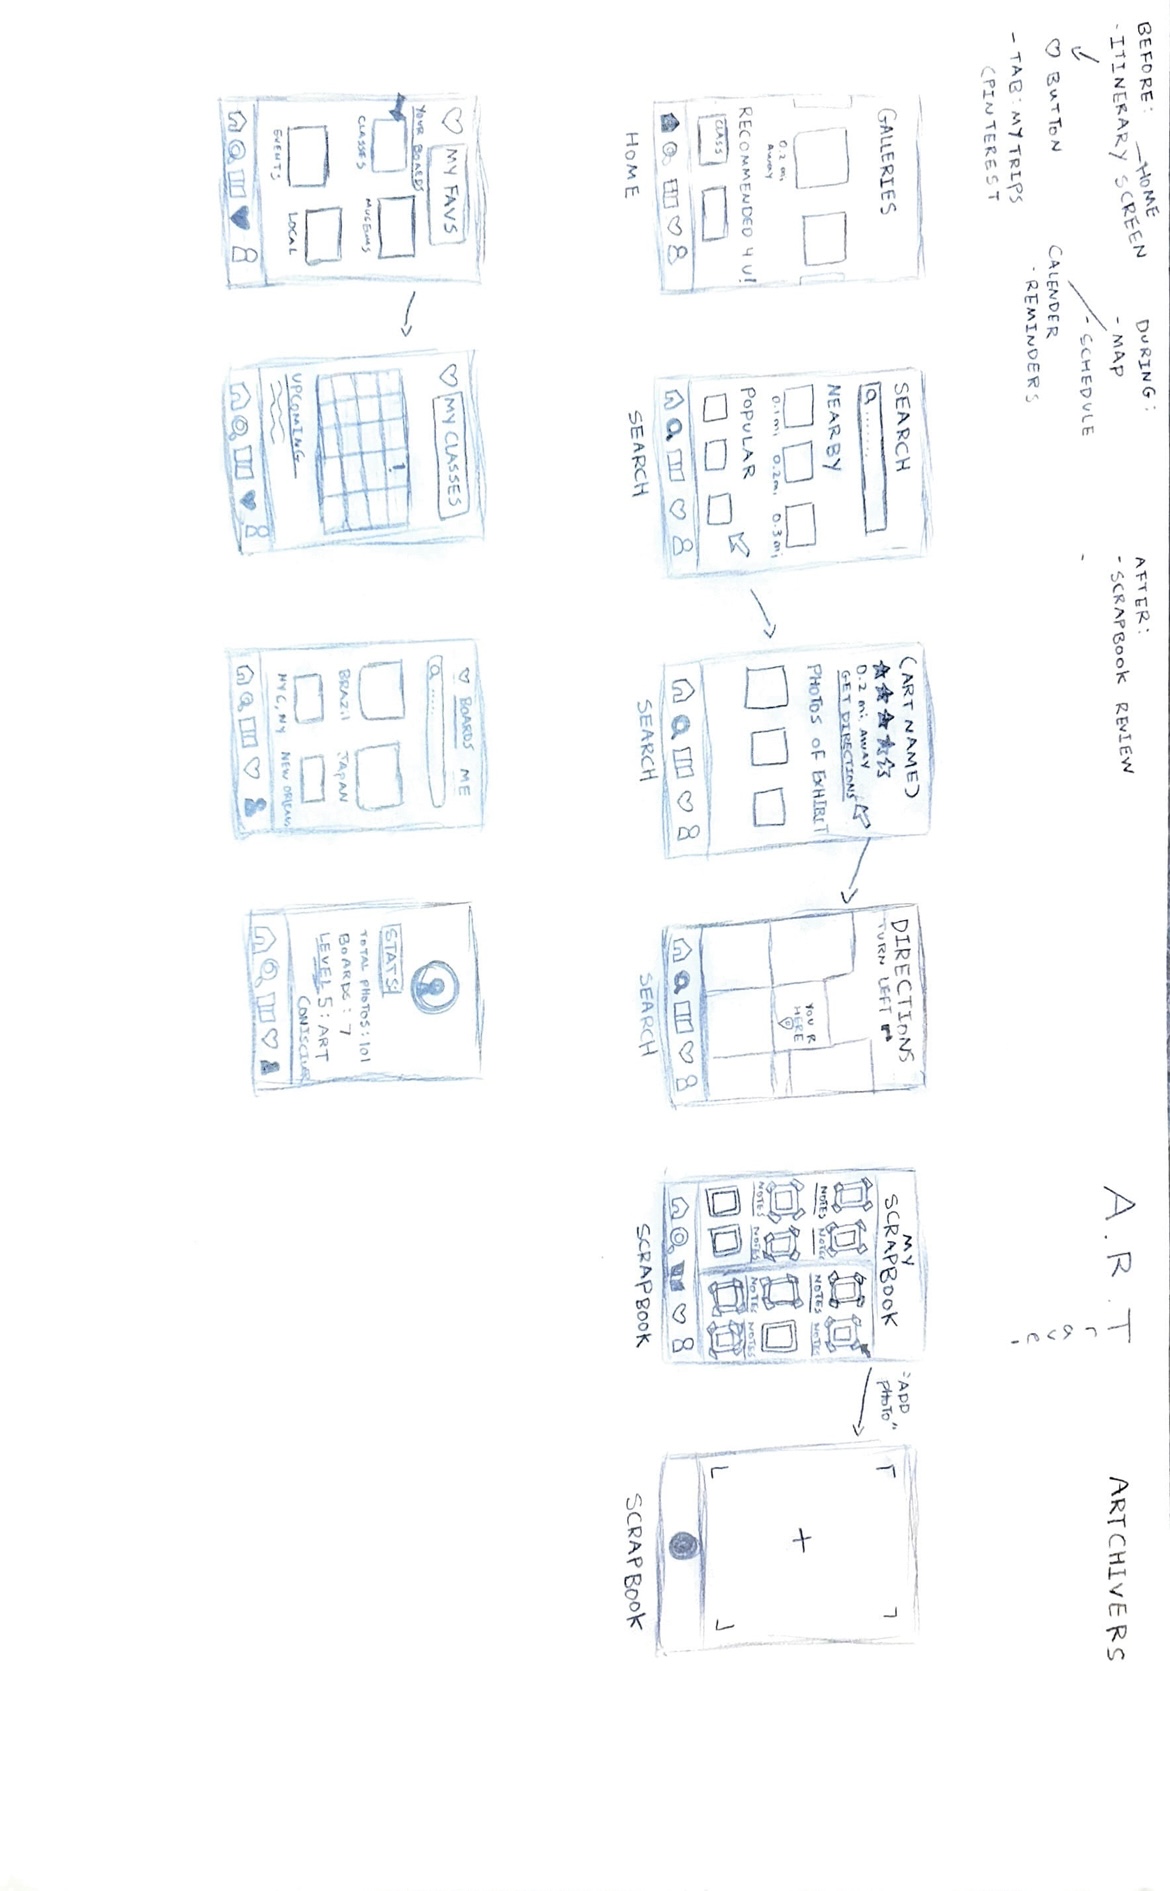 BEFORE:
- ITINERARY SCREEN
HOME
♡ BUTTON
- TAB: MY TRIPS
(PINTEREST
DURING:
- MAP
- SCHEDULE
CALENDER
- REMINDERS
AFTER:
- SCRAPBOOK REVIEW
-
A.R.T
r
a
v
e
.
ARTCHIVERS
GALLERIES
0.2 mi,
AWAY
RECOMMENDED 4 U!
CLASS
HOME
SEARCH
NEARBY
0.1 mi, 0.2 mi, 0.3 mi,
POPULAR
SEARCH
(ART NAME)
0.2 mi, AWAY
GET DIRECTIONS
PHOTOS OF EXHIBIT
SEARCH
DIRECTIONS
TURN LEFT
YOU R
HERE
SEARCH
MY
SCRAPBOOK
NOTES NOTES NOTES NOTES
NOTES NOTES NOTES NOTES
SCRAPBOOK
"ADD
PHOTO"
SCRAPBOOK
♡ MY FAVS
YOUR BOARDS
CLASSES MUSEUMS
EVENTS LOCAL
♡ MY CLASSES
!
UPCOMING
♡ BOARDS ME
BRAZIL JAPAN
NYC, NY NEW ORLEANS
STATS:
TOTAL PHOTOS: 101
BOARDS: 7
LEVEL 5: ART